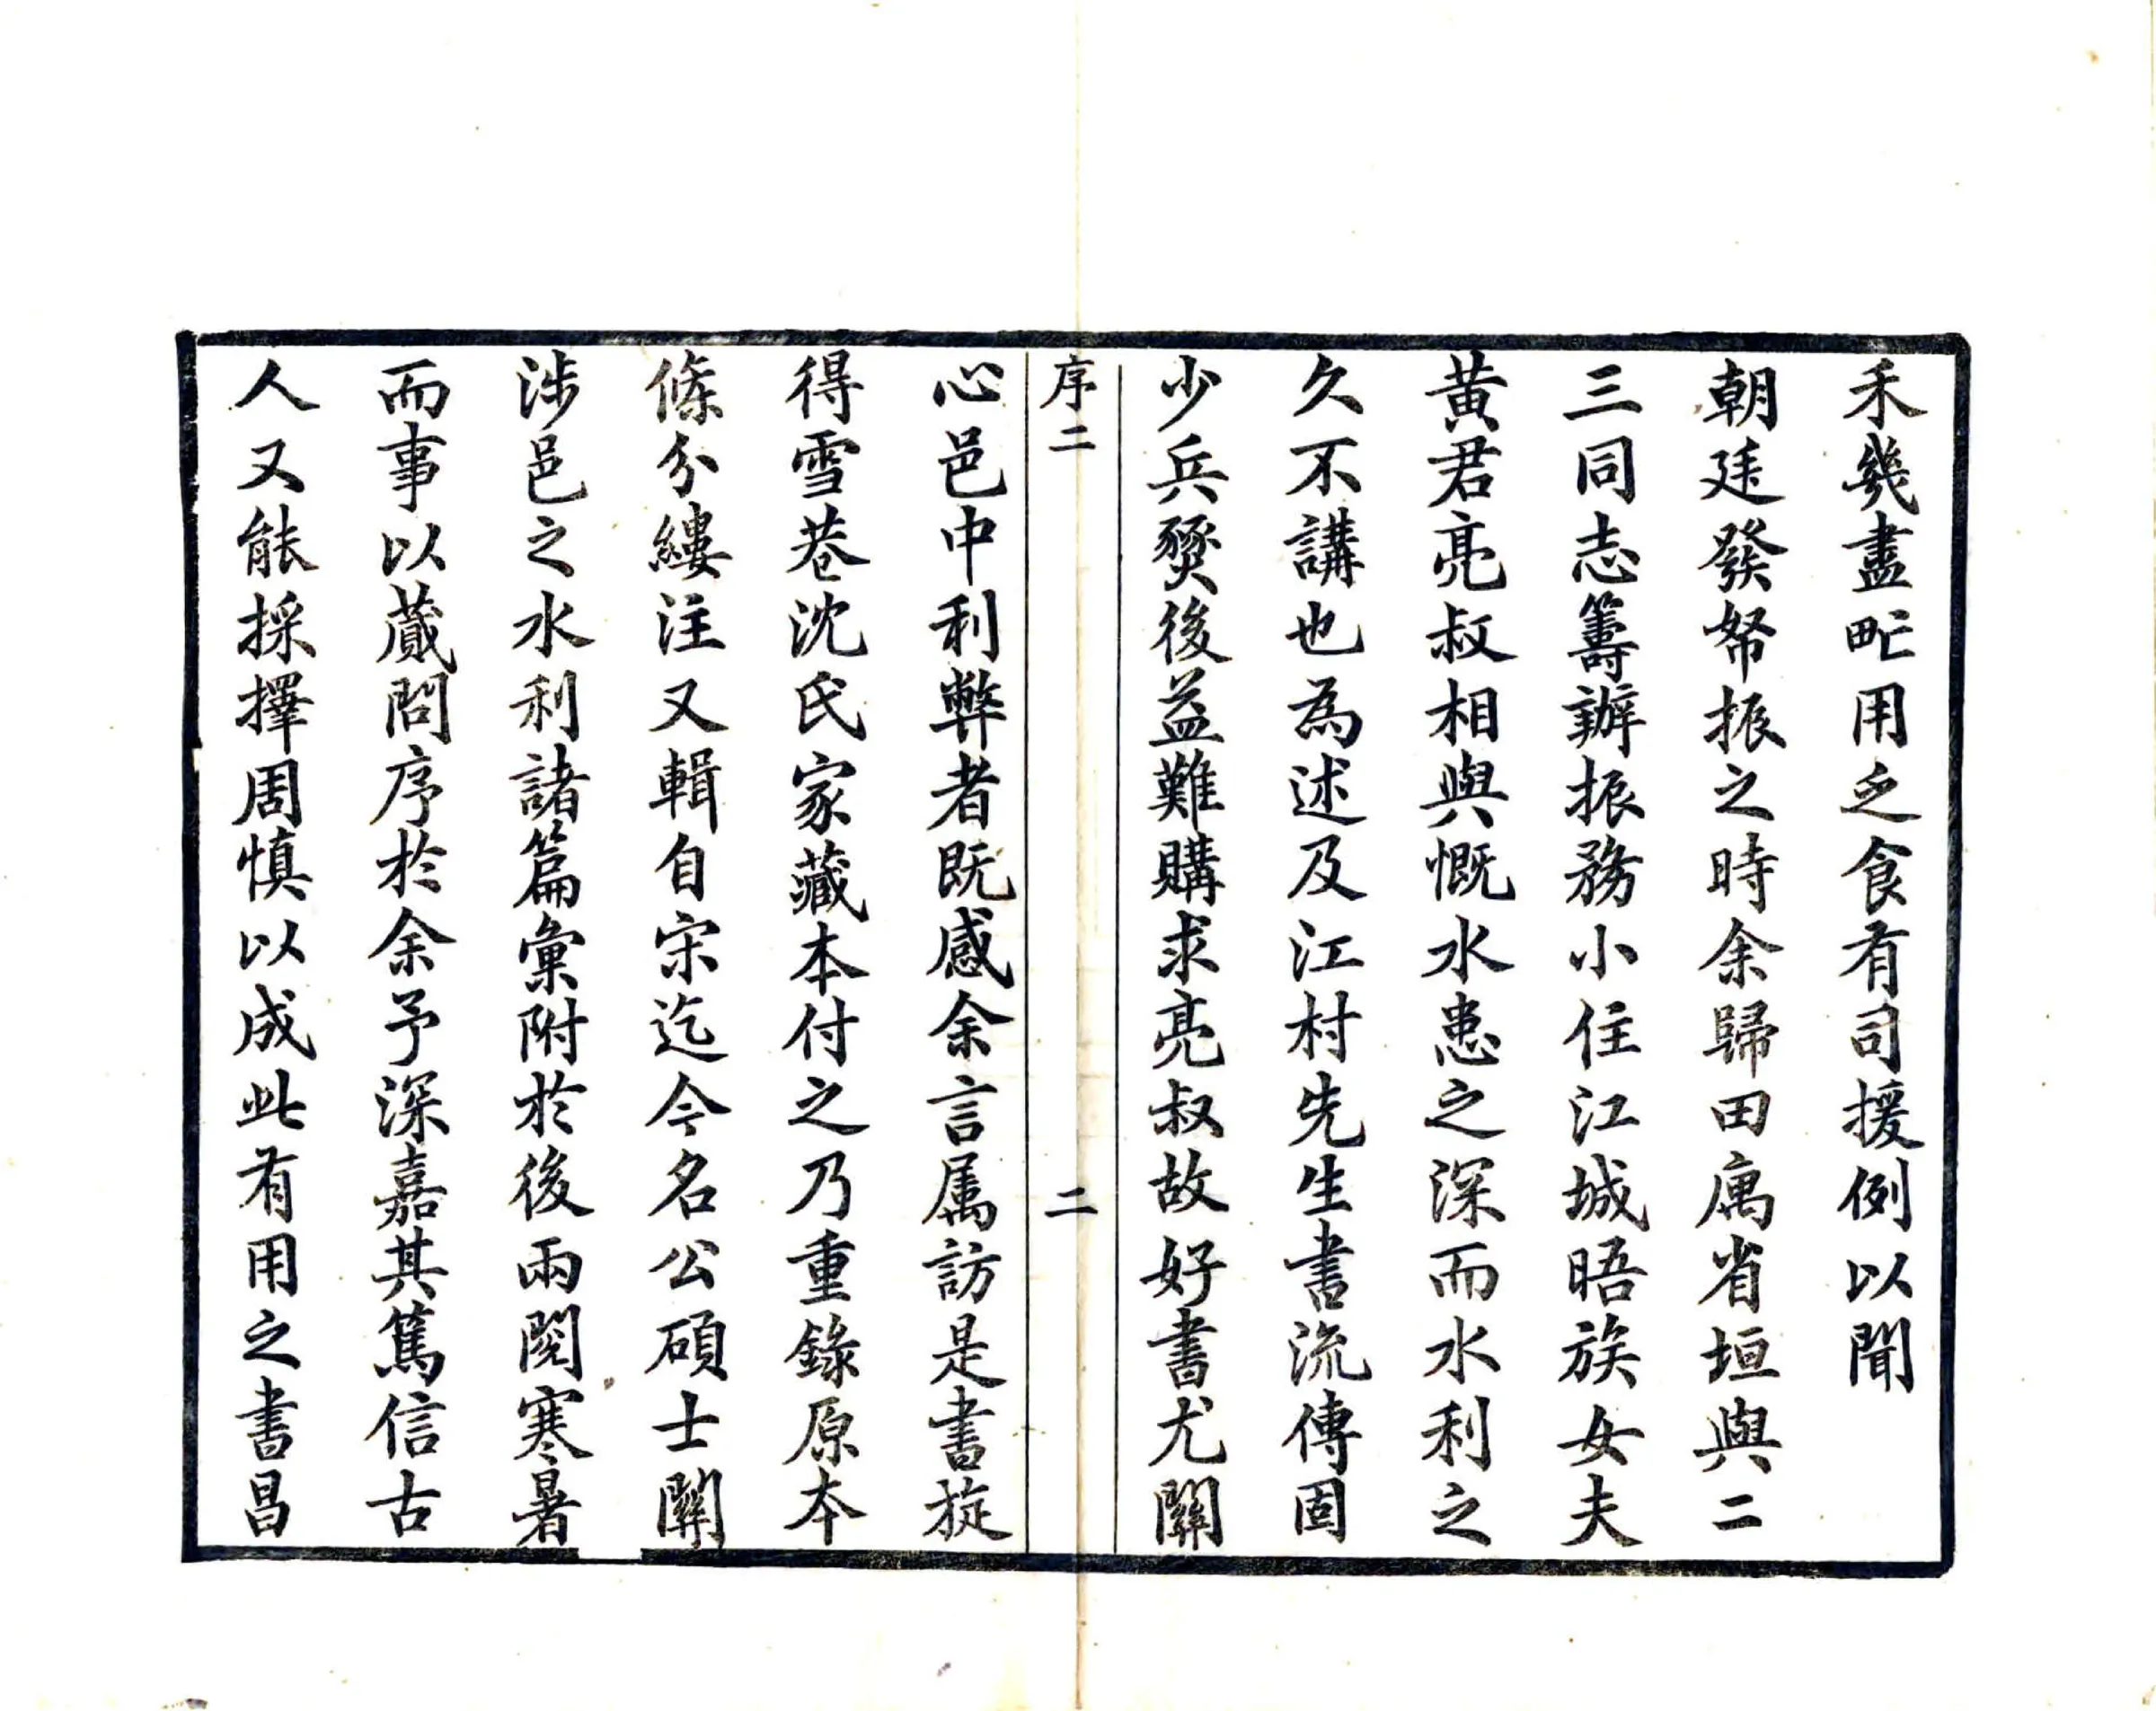 禾幾盡甿用乏食有司援例以聞
朝廷發帑振之時余歸田寓省垣與二
三同志籌辦振務小住江城晤族女夫
黃君亮叔相與慨水患之深而水利之
久不講也為述及江村先生書流傳固
少兵燹後益難購求亮叔故好書尤關
序二
二
心邑中利弊者既感余言属訪是書旋
得雪巷沈氏家藏本付之乃重錄原本
條分縷注又輯自宋迄今名公碩士關
涉邑之水利諸篇彙附於後兩閱寒暑
而事以蕆問序於余予深嘉其篤信古
人又能採擇周慎以成此有用之書昌